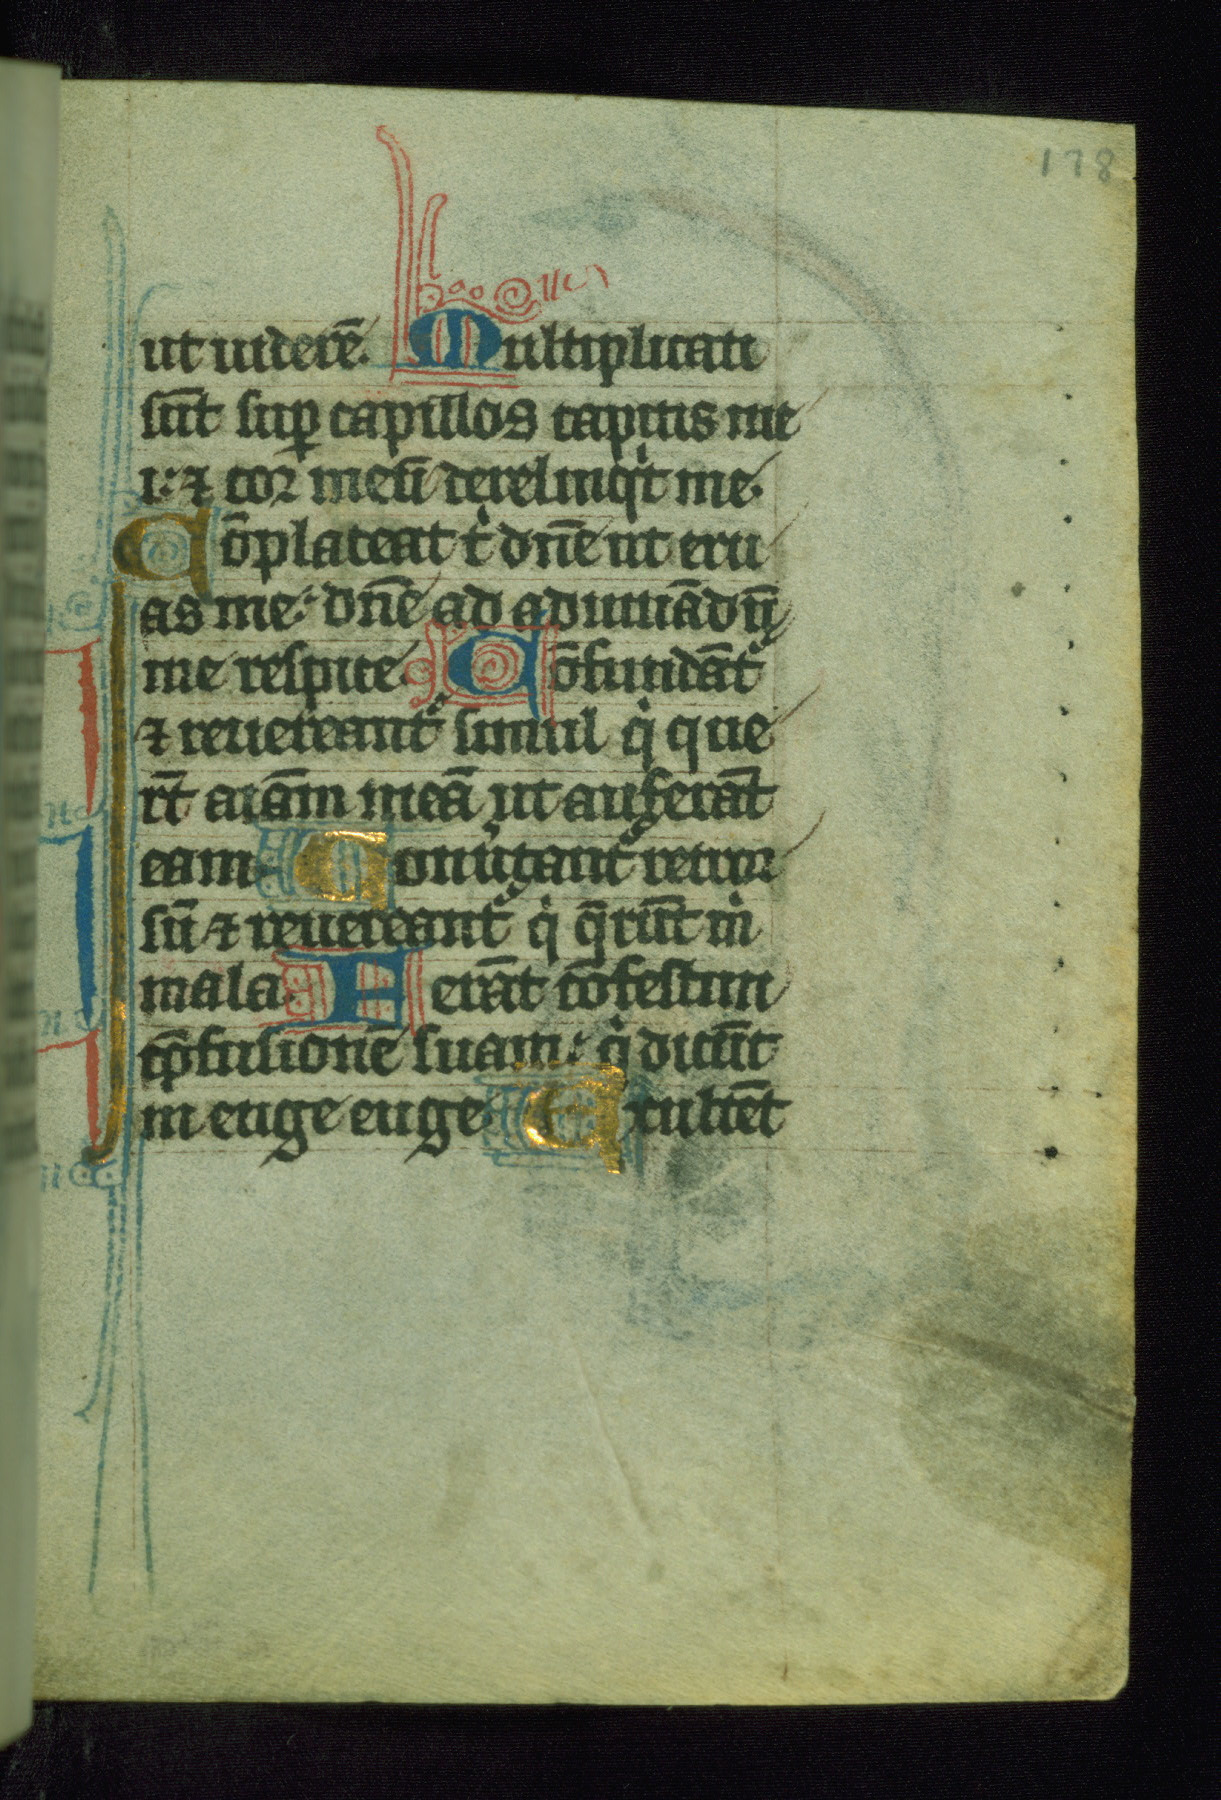 178
ut uiderē. Multiplicati
sūt suꝑ capillos capitis me
i: ⁊ cor meū derelinqͥt me.
Cōplaceat tͥ dn̄e ut eru
as me: dn̄e ad adiuuādū
me respice. Cōfundāt᷑
⁊ reuereant᷑ simul qͥ que
rt̄ aīam meā ut auferāt
eam. Conuͥtant᷑ retror
sū ⁊ reuereant᷑ qͥ q̄rūt mͥ
mala. Ferāt cōfestim
ꝯfusionē suam: qͥ dicūt
m euge euge. Exultēt